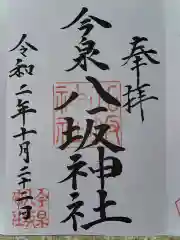 奉拝
今泉八坂神社
令和二年十月二十二日